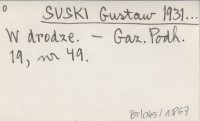 SUSKI Gustaw 1931...
W drodze. – Gaz. Podh.
19, nr 49.